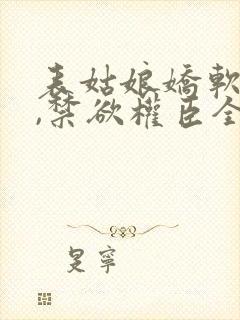 表姑娘嬌軟
,禁欲權臣全
寧